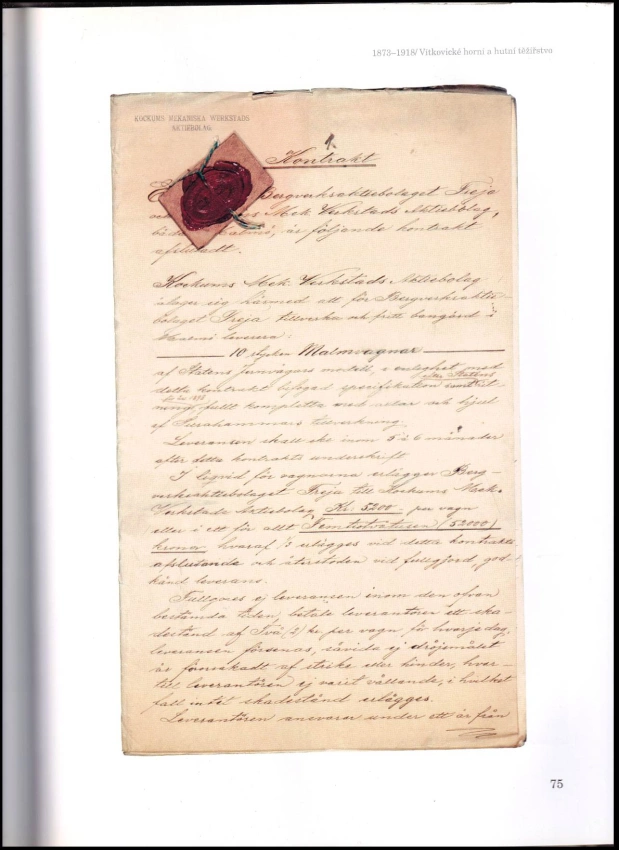 1873–1918/ Vítkovické horní a hutní těžířstvo
KOCKUMS MEKANISKA WERKSTADS
AKTIEBOLAG
Kontrakt
Bergverksaktiebolaget Freja
Mek. Verkstads Aktiebolag,
Malmö, är följande kontrakt
afslutadt.
Kockums Mek. Verkstads Aktiebolag
åtager sig härmed att för Bergverksaktie-
bolaget Freja tillverka och fritt bangård i
Malmö leverera:
10 stycken Malmvagnar
af Statens Jernvägars modell, i enlighet med
efter Statens
detta kontrakt bifogad specifikation samt rit-
ning fullt kompletta med axlar och hjul
af Surahammars tillverkning.
Leveransen skall ske inom 5 à 6 månader
efter detta kontrakts underskrift.
I liqvid för vagnarna erlägger Berg-
verksaktiebolaget Freja till Kockums Mek.
Verkstads Aktiebolag Kr. 5200 per vagn
eller i ett för allt Femtiotvåtusen (52000)
kronor, hvaraf 1/3 erlägges vid detta kontrakts
afslutande och återstoden vid fullgjord, god-
känd leverans.
Fullgöres ej leveransen inom den ofvan
bestämda tiden, betale leverantören ett ska-
destånd af Två (2) kr. per vagn för hvarje dag,
leveransen försenas, såvida ej dröjsmålet
är förorsakadt af strike eller hinder, hvar-
till leverantören ej varit vållande, i hvilket
fall intet skadestånd erlägges.
Leverantören ansvarar under ett år från
75